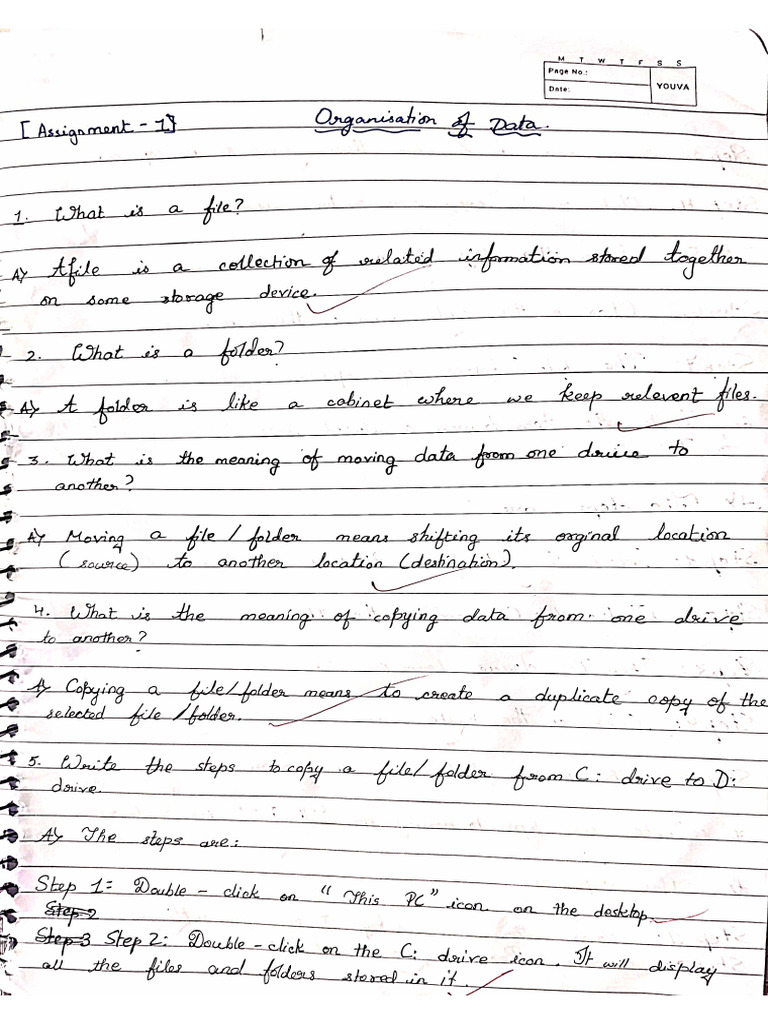 M T W T F S S
Page No.:
Date:
YOUVA
[Assignment - 1}
Organisation of Data.
1. What is a file?
A) A file is a collection of related information stored together
on some storage device.
2. What is a folder?
A) A folder is like a cabinet where we keep relevent files.
3. What is the meaning of moving data from one drive to
another?
A) Moving a file / folder means shifting its orginal location
(source) to another location (destination).
4. What is the meaning of copying data from one drive
to another?
A) Copying a file/folder means to create a duplicate copy of the
selected file /folder.
5. Write the steps to copy a file/folder from C: drive to D:
drive.
A) The steps are:
Step 1: Double - click on "This PC" icon on the desktop.
Step 2
Step 3 Step 2: Double - click on the C: drive icon. It will display
all the files and folders stored in it.